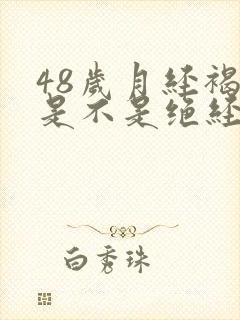 48歲月经褐
是不是绝经
白秀珠